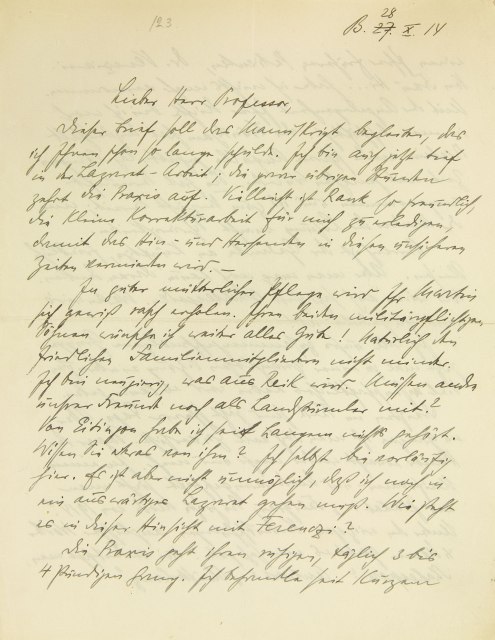 123
B. 28
27. X. 14
Lieber Herr Professor,
dieser Brief soll das Manuskript begleiten, das
ich Ihnen schon so lange schulde. Ich bin auch jetzt tief
in der Lazaret-Arbeit; die paar übrigen Stunden
zehrt die Praxis auf. Vielleicht ist Rank so freundlich,
die kleine Korrekturarbeit für mich zu erledigen,
damit das Hin- und Hersenden in diesen unsicheren
Zeiten vermieden wird. —
In guter mütterlicher Pflege wird Ihr Martin
sich gewiß rasch erholen. Ihren beiden militärpflichtigen
Söhnen wünsche ich weiter alles Gute! Natürlich den
friedlichen Familienmitgliedern nicht minder.
Ich bin neugierig, was aus Reik wird. Müssen andre
unsrer Freunde noch als Landstürmler mit?
Von Eitingon habe ich seit Langem nichts gehört.
Wissen Sie etwas von ihm? Ich selbst bin vorläufig
hier. Es ist aber nicht unmöglich, daß ich noch in
ein auswärtiges Lazaret gehen muß. Wie steht
es in dieser Hinsicht mit Ferenczi?
Die Praxis geht ihren ruhigen, täglich 3 bis
4 stündigen Gang. Ich behandle seit Kurzem